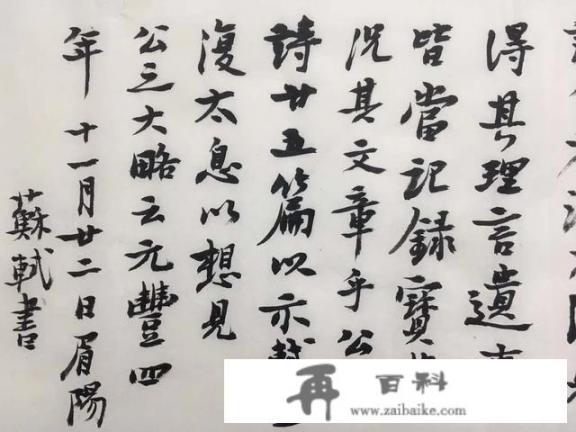 得其理言遺
皆當記録寶
況其文章乎公
詩廿五篇以示軾
復太息以想見
公之大略云元豐四
年十一月廿二日眉陽
蘇軾書
再百科
www.zaibaike.com